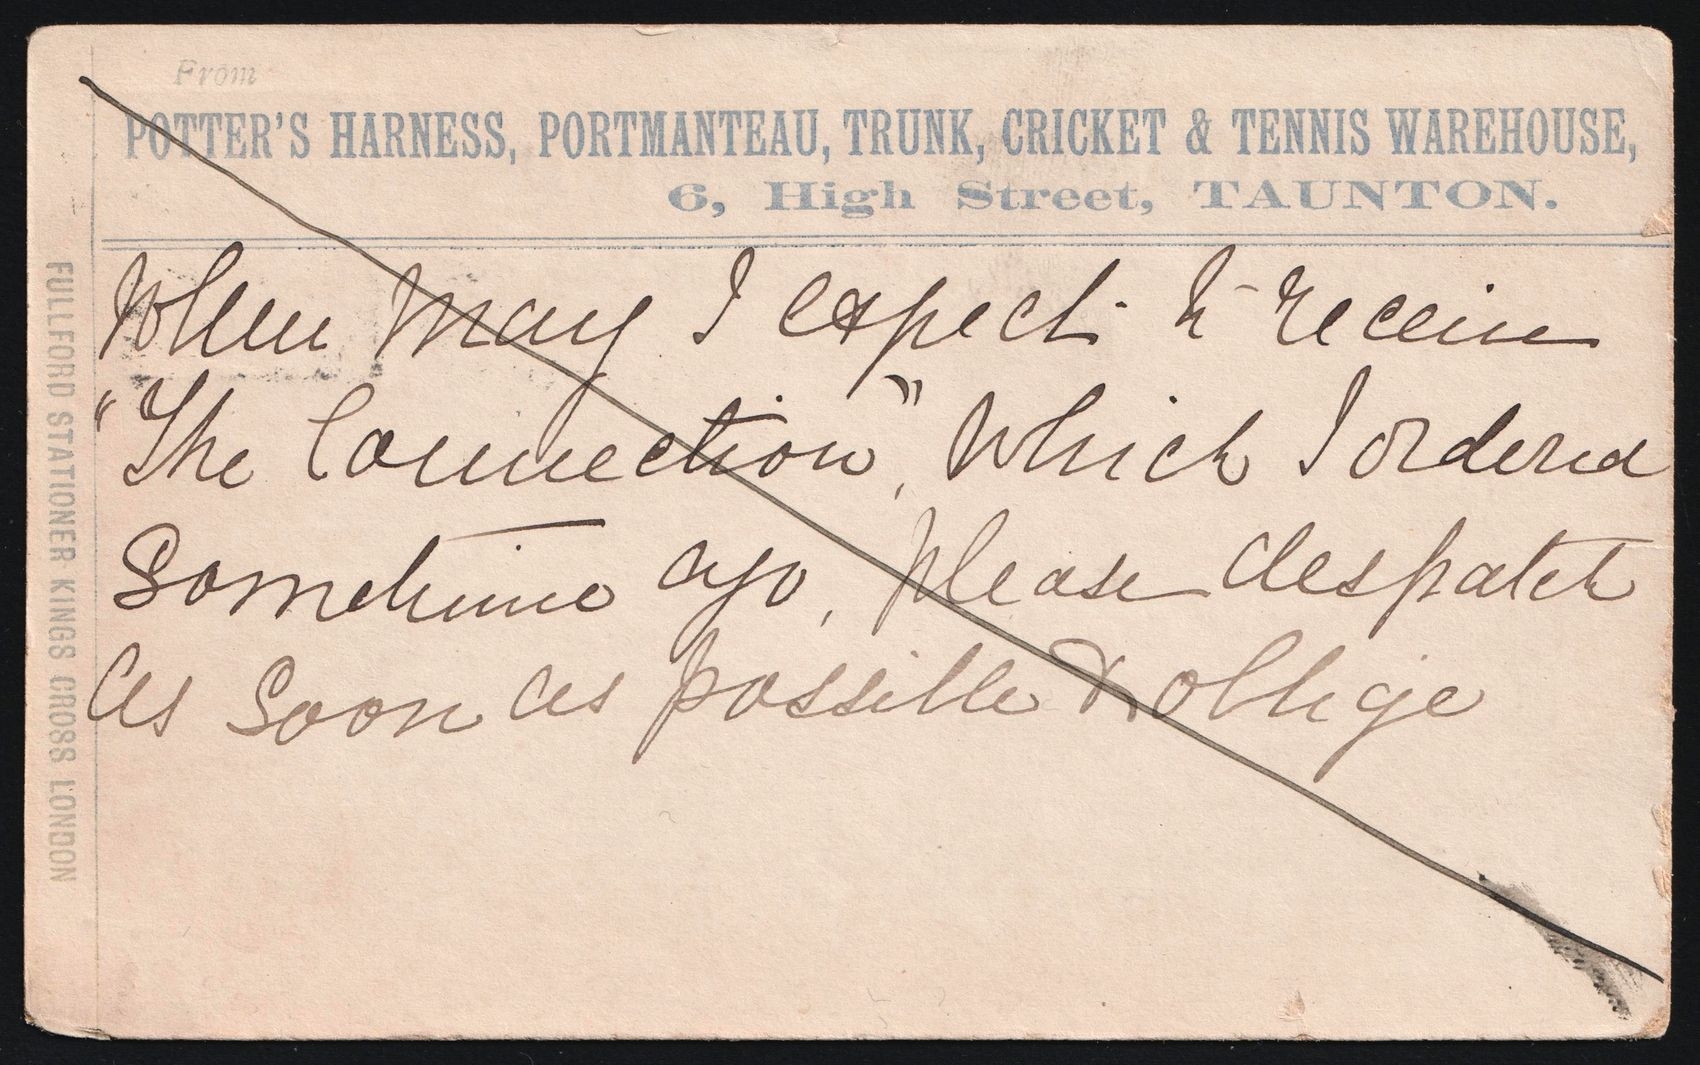 From
POTTER'S HARNESS, PORTMANTEAU, TRUNK, CRICKET & TENNIS WAREHOUSE,
6, High Street, TAUNTON.
When may I expect to receive
"The Connection", which I ordered
Sometime ago, please despatch
as soon as possible & oblige
FULLFORD STATIONER KINGS CROSS LONDON